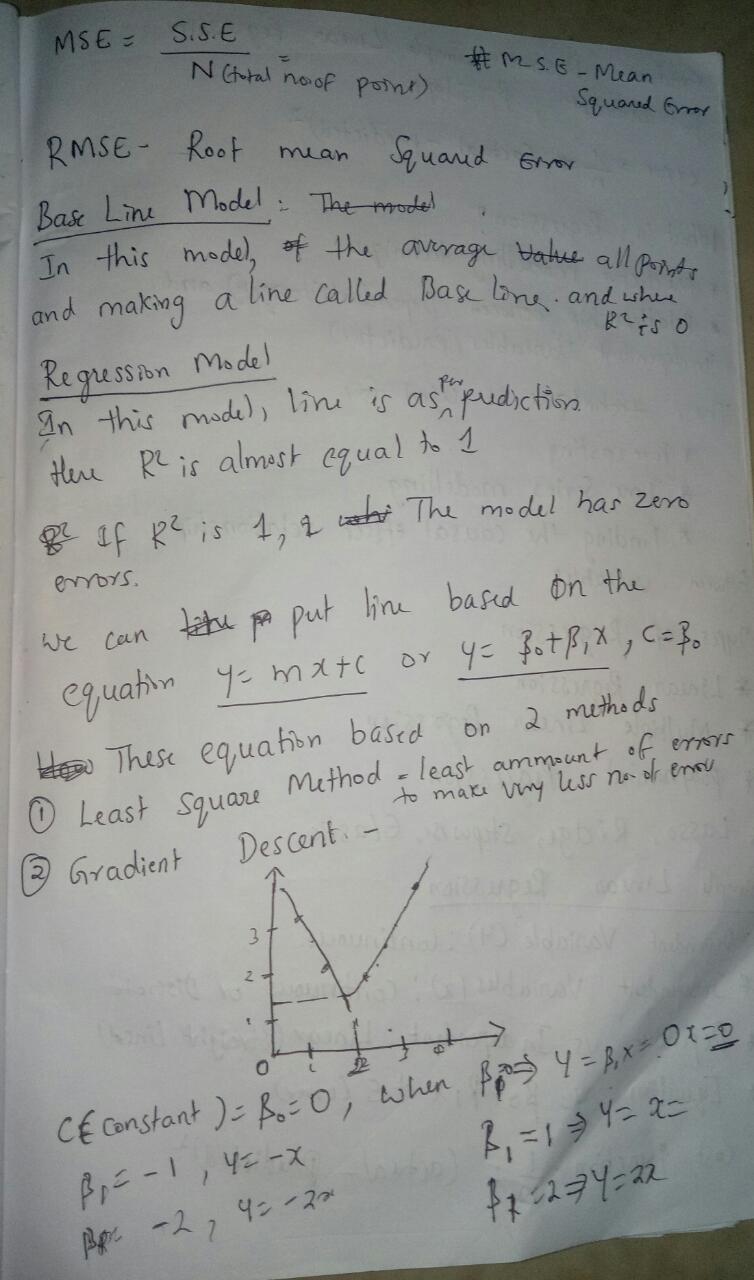 MSE = S.S.E
N (total no of points)
# M.S.E - Mean
Squared Error
RMSE - Root mean Squared Error
Base Line Model : The model
In this model, of the average value all points
and making a line called Base line. and where
R² is 0
Regression Model
In this model, line is as per prediction.
Here R² is almost equal to 1
If R² is 1, The model has zero
errors.
We can put line based on the
equation y = mx+c or y = β₀+β₁x, C=β₀
These equation based on 2 methods
① Least Square Method = least ammount of errors
to make very less no. of error
② Gradient Descent. -
3
2
1
0 1 2 3
C(constant) = β₀ = 0, when β₁=0 ⇒ y = β₁x = 0x = 0
β₁ = -1, y = -x
β₁ = 1 ⇒ y = x =
-2, y = -2x
=2 ⇒ y = 2x